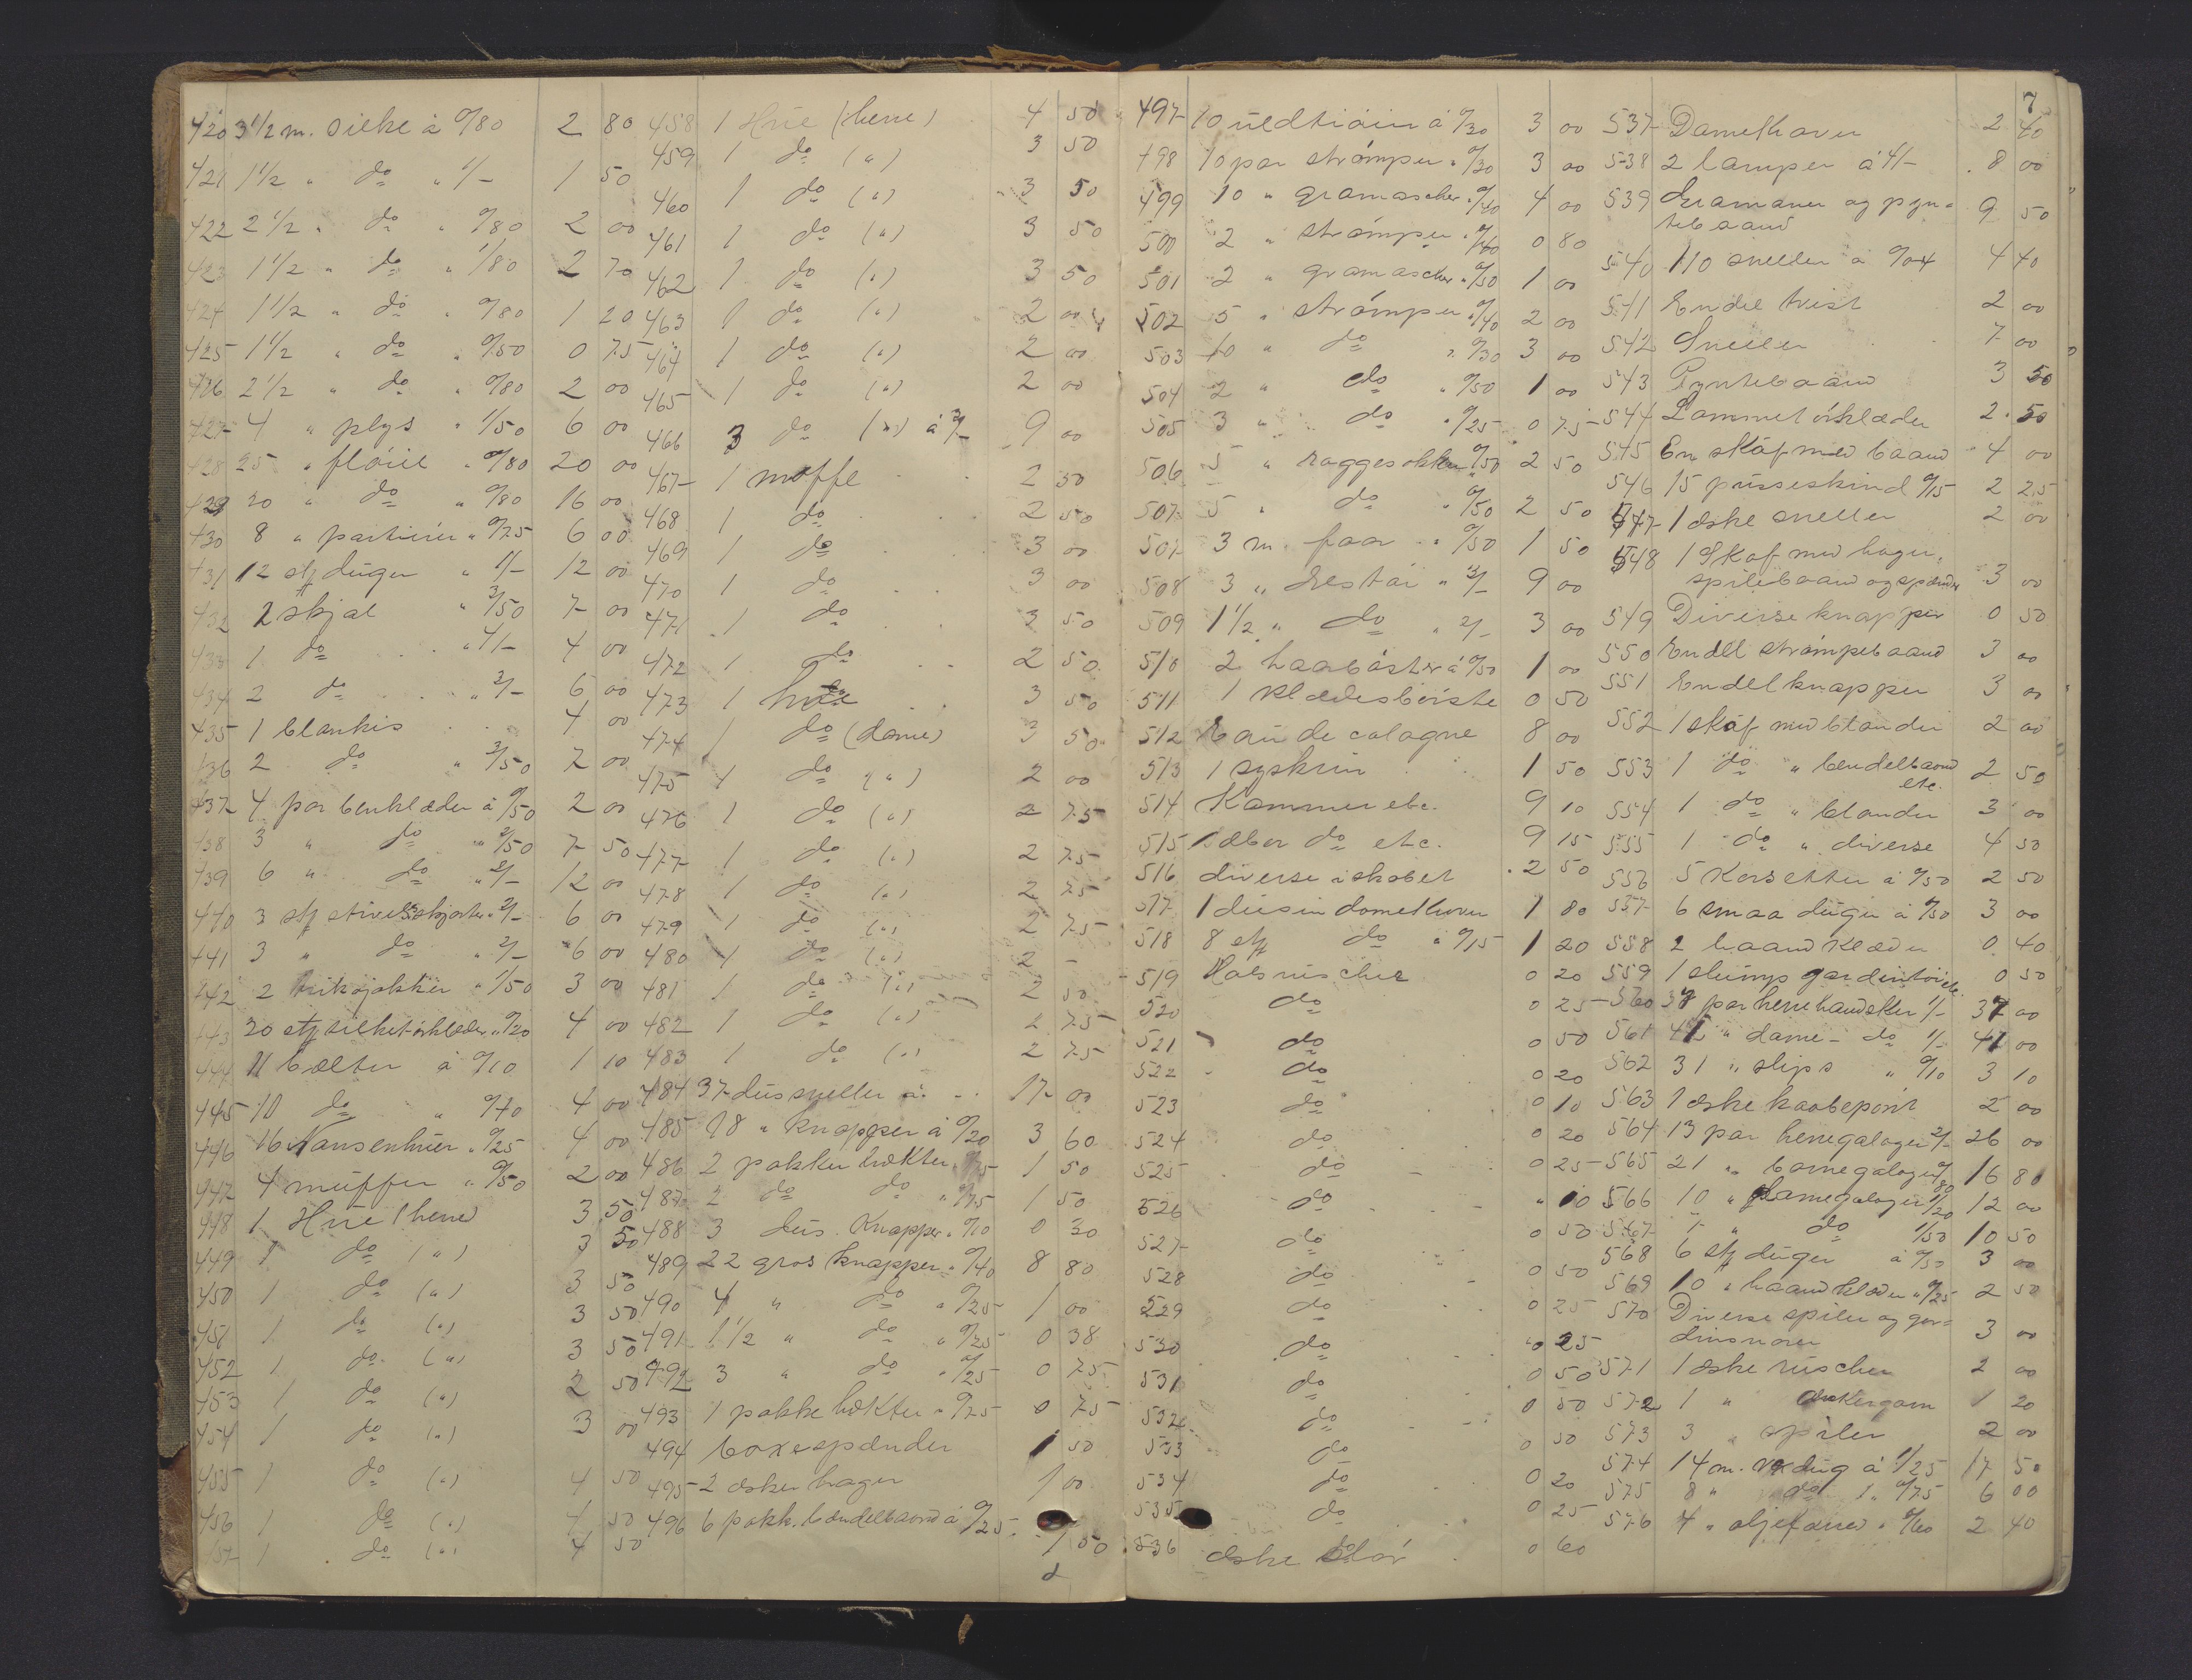 420 3 1/2 m. silke à 0/80 2 80
421 1 1/2 " do " 1/- 1 50
422 2 1/2 " do " 0/80 2 00
423 1 1/2 " do " 1/80 2 70
424 1 1/2 " do " 0/80 1 20
425 1 1/2 " do " 0/50 0 75
426 2 1/2 " do " 0/80 2 00
427 4 " plys " 1/50 6 00
428 25 " fløiel " 0/80 20 00
429 20 " do " 0/80 16 00
430 8 " " 0/75 6 00
431 12 stk duger " 1/- 12 00
432 2 skjal " 3/50 7 00
433 1 do " 4/- 4 00
434 2 do " 3/- 6 00
435 1 blankis 4 00
436 2 do " 3/50 7 00
437 4 par benklæder à 0/50 2 00
438 3 " do " 2/50 7 50
439 6 " do " 2/- 12 00
440 3 stk stiveskjorter " 2/- 6 00
441 3 " do " 2/- 6 00
442 2 " 1/50 3 00
443 20 stk silketørklæder " 0/20 4 00
444 11 belter à 0/10 1 10
445 10 do " 0/40 4 00
446 16 Nansenhuer " 0/25 4 00
447 4 muffer " 0/50 2 00
448 1 Hue (herre) 3 50
449 1 do (") 3 50
450 1 do (") 3 50
451 1 do (") 3 50
452 1 do (") 3 50
453 1 do (") 2 50
454 1 do (") 3 00
455 1 do (") 4 50
456 1 do (") 4 50
457 1 do (") 4 50
458 1 Hue (herre) 4 50
459 1 do (") 3 50
460 1 do (") 3 50
461 1 do (") 3 50
462 1 do (") 3 50
463 1 do (") 2 00
464 1 do (") 2 00
465 1 do (") 2 00
466 3 do (") à 3/- 9 00
467 1 moffe 2 50
468 1 do 2 50
469 1 do 3 00
470 1 do 3 00
471 1 do 3 50
472 1 do 2 50
473 1 hue 3 50
474 1 do (dame) 3 50
475 1 do (") 2 00
476 1 do (") 2 75
477 1 do (") 2 75
478 1 do (") 2 75
479 1 do (") 2 75
480 1 do (") 2 -
481 1 do (") 2 50
482 1 do (") 2 75
483 1 do (") 2 75
484 37 dus sneller à 17 00
485 18 " knapper à 0/20 3 60
486 2 pakker hækter " 0/75 1 50
487 2 do do " 0/75 1 50
488 3 dus. Knapper " 0/10 0 30
489 22 gros knapper " 0/40 8 80
490 4 " do " 0/25 1 00
491 1 1/2 " do " 0/25 0 38
492 3 " do " 0/25 0 75
493 1 pakke hækter " 0/75 0 75
494 boxespænder 1 50
495 2 æsker hager 1 00
496 6 pakk. bændelbaand à 0/25 1 50
497 10 à 0/30 3 00
498 10 par strømper " 0/30 3 00
499 10 " gramascher " 0/40 4 00
500 2 " strømper " 0/40 0 80
501 2 " gramascher " 0/50 1 00
502 5 " strømper " 0/40 2 00
503 10 " do " 0/30 3 00
504 2 " do " 0/50 1 00
505 3 " do " 0/25 0 75
506 5 " raggesokker " 0/50 2 50
507 5 " do " 0/50 2 50
507 3 m. foer " 0/50 1 50
508 3 " " 3/- 9 00
509 1 1/2 " do " 2/- 3 00
510 2 haarbøster à 0/50 1 00
511 1 klædesbørste 0 50
512 Eau de cologne 8 00
513 1 syskrin 1 50
514 Kammer etc. 9 10
515 do etc. 9 15
516 diverse i skabet 2 50
517 1 dusin 1 80
518 8 stk do " 0/15 1 20
519 Halsruscher 0 20
520 do 0 25
521 do 0 50
522 do 0 20
523 do 0 10
524 do 0 20
525 do 0 25
526 do " 10
527 do 0 50
528 do 0 50
529 do 0 25
530 do 0 25
531 do 0 50
532 do 0 50
533 do 0 50
534 do 0 20
535 do 0 25
536 æske 0 60
7
537 2 40
538 2 lamper à 4/- 8 00
539 og pyn=
tebaand 9 50
540 110 sneller à 0/04 4 40
541 Endel tvist 2 00
542 Sneller 7 00
543 Pyntebaand 3 50
544 Lommetørklæder 2 50
545 En skuf med baand 4 00
546 15 pusseskind 0/15 2 25
547 1 æske sneller 2 00
548 1 Skuf med hager,
spilebaand og spænder 3 00
549 Diverse knapper 0 50
550 Endel strømpebaand 3 00
551 Endel knapper 3 00
552 1 skuf med blonder 2 00
553 1 do " bendelbaand
etc. 2 50
554 1 do " blonder 3 00
555 1 do " diverse 4 50
556 5 Korsetter à 0/50 2 50
557 6 smaa duger à 0/50 3 00
558 2 haandklæder 0 40
559 1 slump gardintøi 0 50
560 37 par herrehandsker 1/- 37 00
561 41 " dame- do 1/- 41 00
562 31 " slips " 0/10 3 10
563 1 æske kaabepynt 2 00
564 13 par herregaloger 2/- 26 00
565 21 " barnegaloger 0/80 16 80
566 10 " damegaloger 1/20 12 00
567 7 " do 1/50 10 50
568 6 stk duger à 0/50 3 00
569 10 " haandklæder " 0/25 2 50
570 Diverse spiler og gar=
dinsnorer 3 00
571 1 æske ruscher 2 00
572 1 " 1 20
573 3 " spiler 2 00
574 14 m. voxdug à 1/25 17 50
575 8 " do " 0/75 6 00
576 4 " " 0/60 2 40